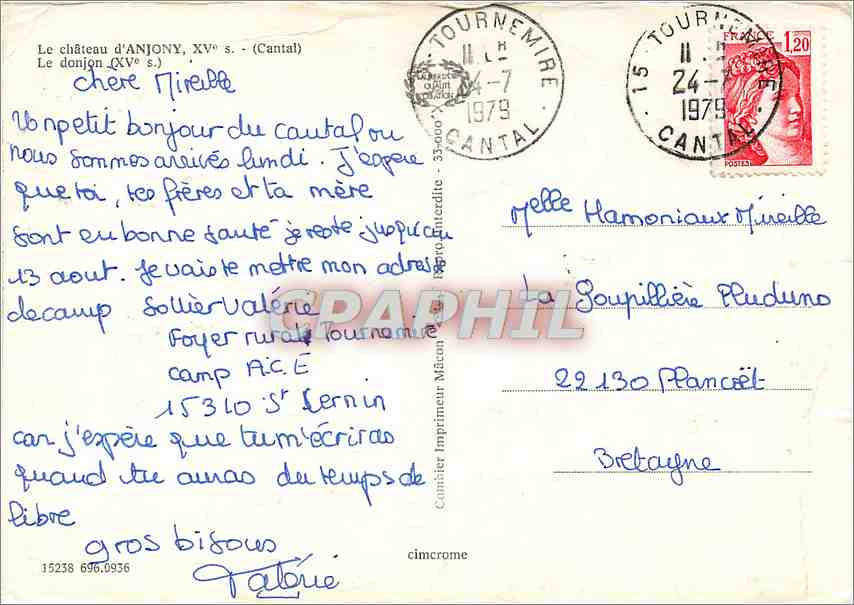 Le château d'ANJONY, XVe s. - (Cantal)
Le donjon (XVe s.)
chère Mireille
Un petit bonjour du cantal ou
nous sommes arrivés lundi. J'espère
que toi, tes frères et ta mère
sont en bonne santé je reste jusqu'au
13 aout. Je vais te mettre mon adresse
de camp Sollier Valérie
Foyer rural Tournemire
camp A.C.E
15310 St Cernin
car j'espère que tu m'écriras
quand tu auras du temps de
libre
gros bisous
Valérie
15238 696.0936
cimcrome
Combier Imprimeur Mâcon
Repro. Interdite - 33-000 X
CPARHIL
TOURNEMIRE
24-7
1979
CANTAL
15 TOURNEMIRE
24-7
1979
CANTAL
FRANCE 1,20
POSTES
Melle Hamoniaux Mireille
La Goupillière Pluduno
22130 Plancoët
Bretagne